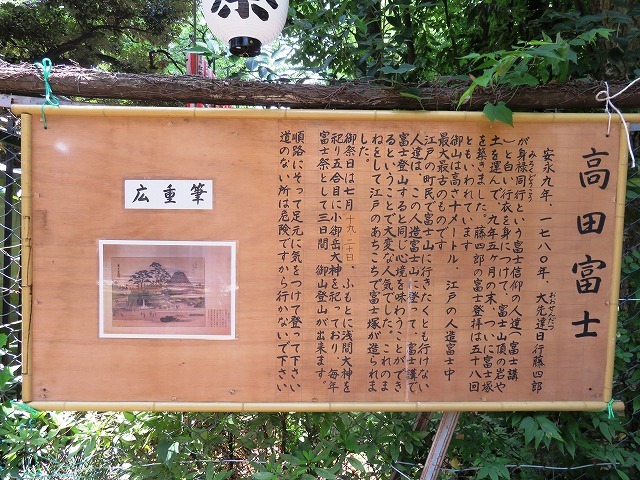 高田富士
安永九年、一七八〇年、大先達日行藤四郎
おおせんだつ
が身禄同行という富士信仰の人達(富士講
みろくどうぎょう
)と白い行衣を身につけて、富士山頂の岩や
土を運んで、九年五ヶ月の末、ここに富士塚
を築きました。藤四郎の富士登拝は五十八回
ともいわれています
御山は高さ十メートル、江戸の人造富士中
最大最古のものです
江戸の町民で富士山に行きたくとも行けない
人達は、この人造富士山へ登って、富士講で
富士登山すると同じ心境を味わうことができ
るということで大変な人気でした。これのま
ねをして江戸のあちこちで富士塚が造られま
した。
御祭日は七月十九、二十日、ふもとに浅間大神を
祀り五合目に小御岳大神を祀っており 毎年
富士祭として三日間 御山登山が出来ます。
順路にそって足元に気をつけて登って下さい
道のない所は危険ですから行かないで下さい
広重筆